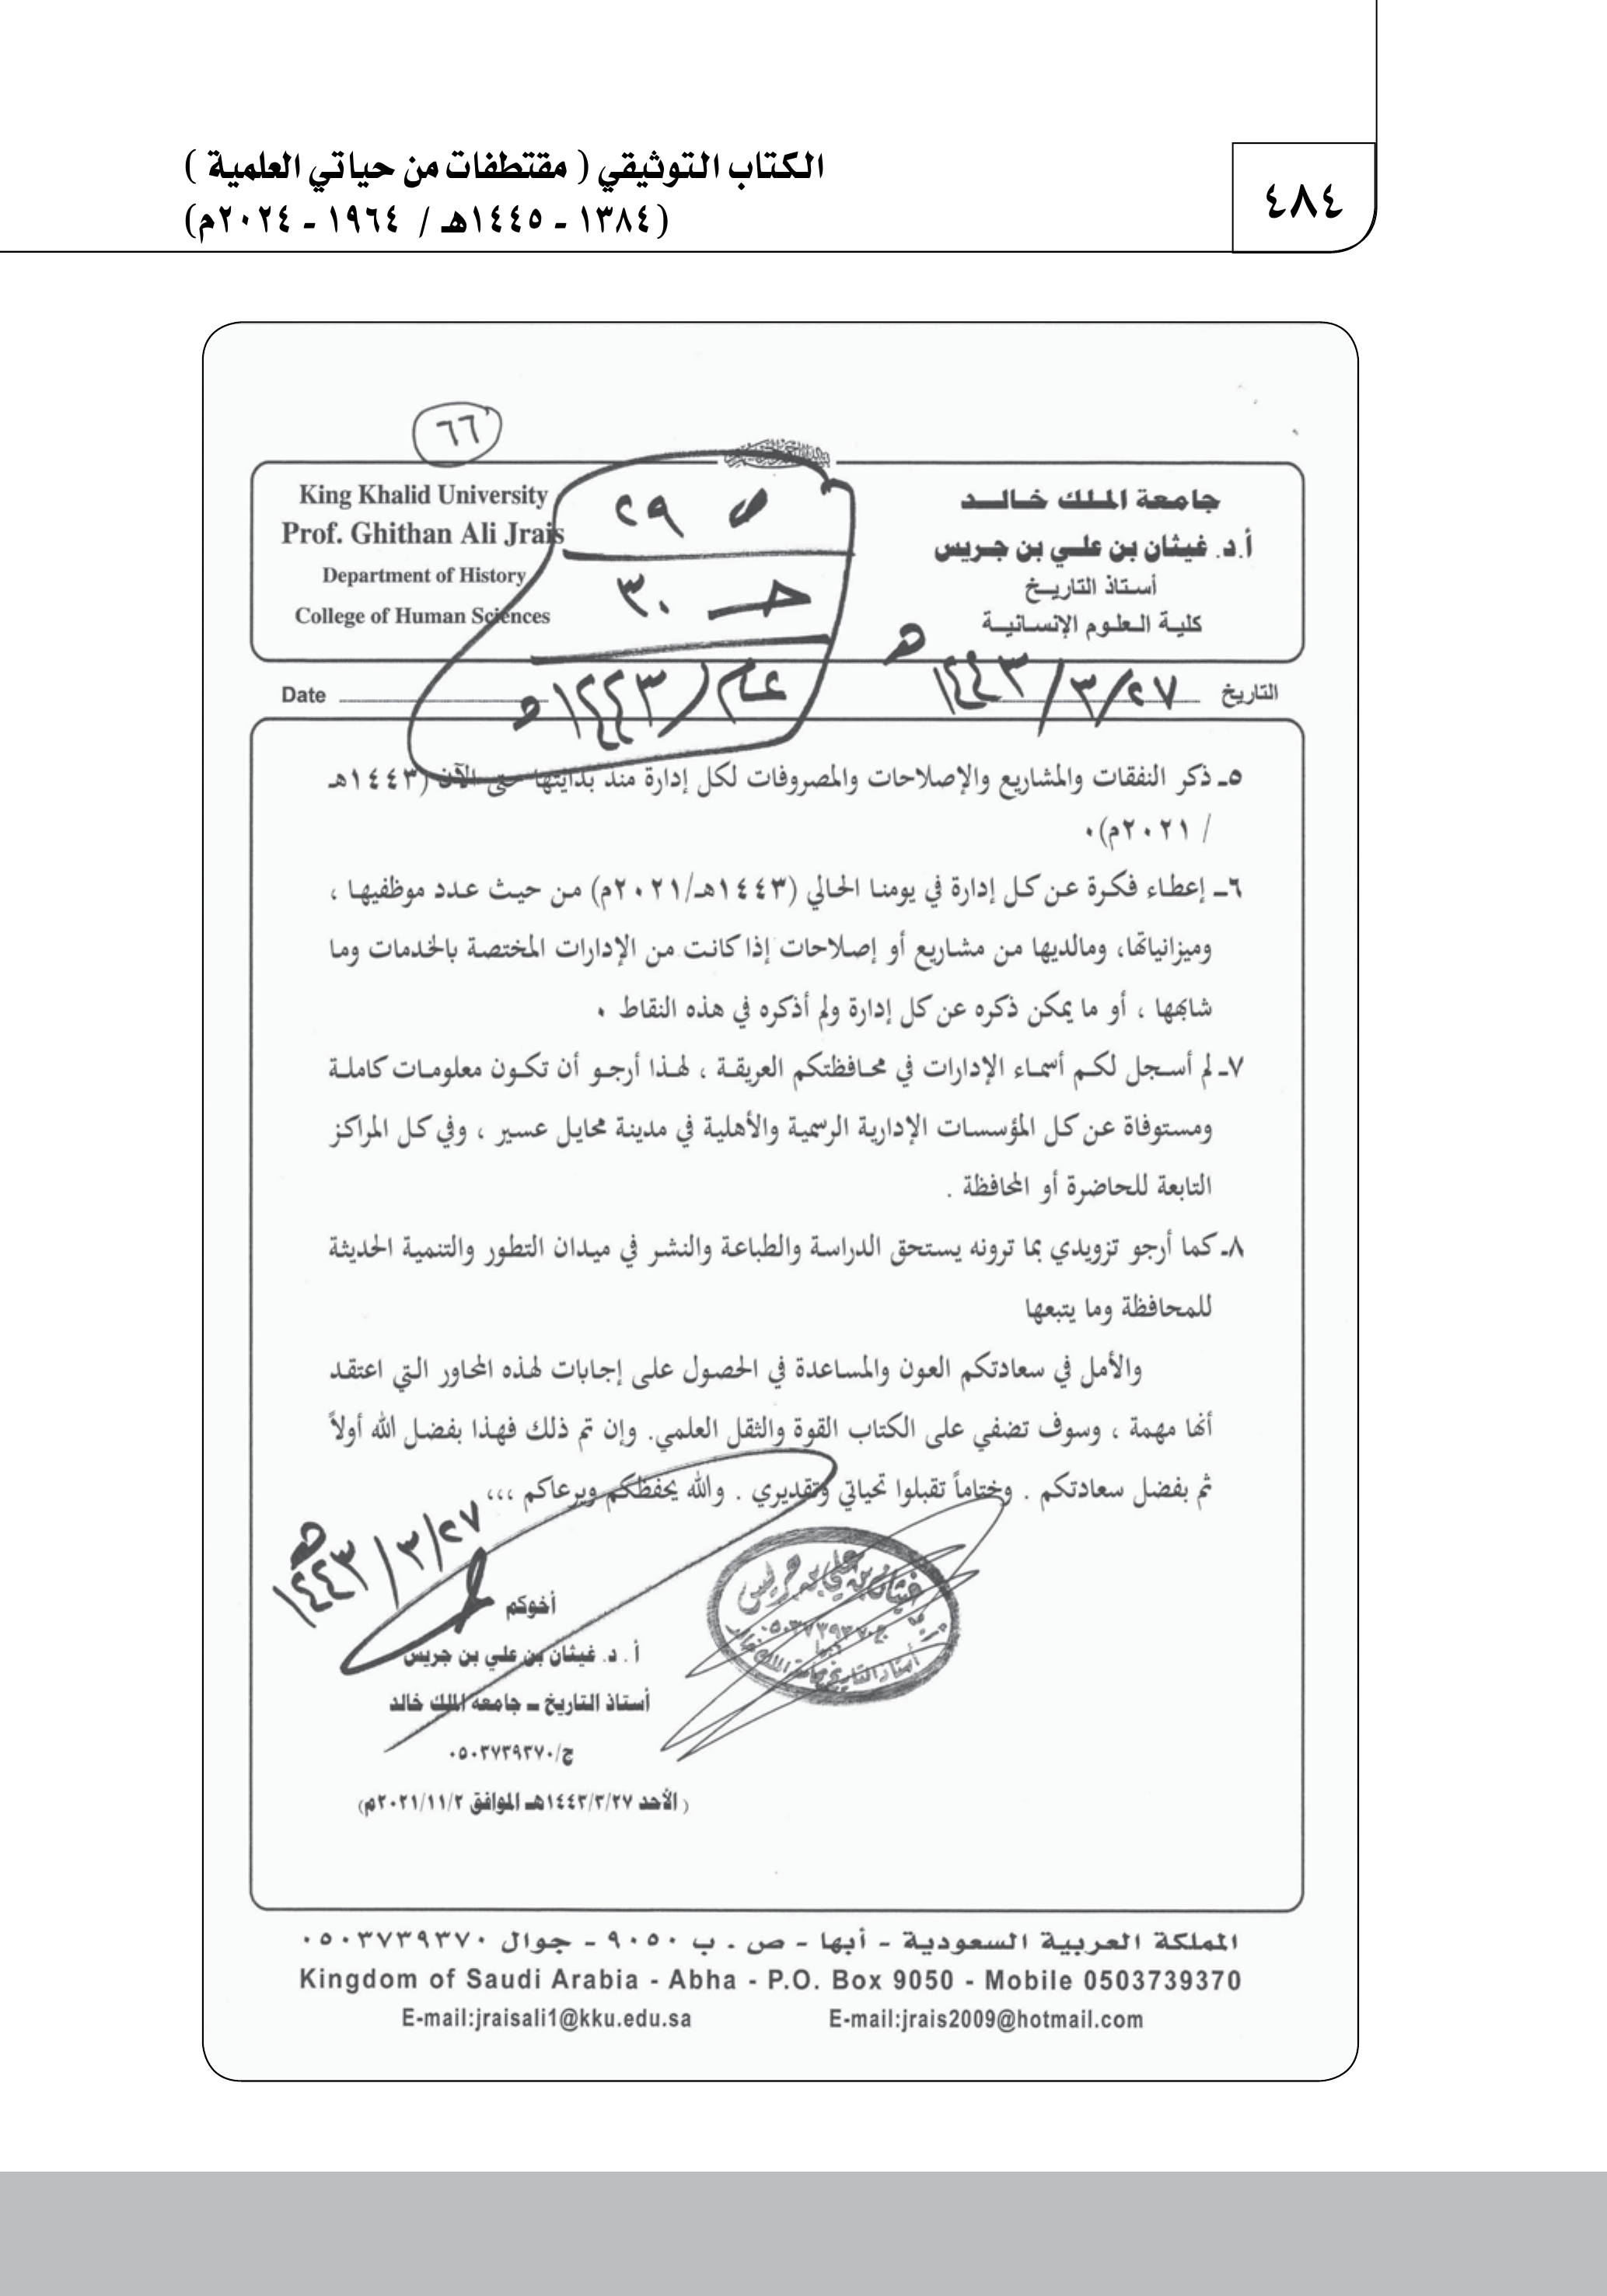 ٤٨٤
الكتاب التوثيقي ( مقتطفات من حياتي العلمية )
(١٣٨٤ - ١٤٤٥هـ / ١٩٦٤ - ٢٠٢٤م)
٦٦
جامعة الملك خالد
أ.د. غيثان بن علي بن جريس
أستاذ التاريخ
كلية العلوم الإنسانية
King Khalid University
Prof. Ghithan Ali Jrais
Department of History
College of Human Sciences
ص ٢٩
جـ ٣٠
عام/١٤٤٣هـ
التاريخ ٣/٢٧/ ١٤٤٣هـ
Date
٥ـ ذكر النفقات والمشاريع والإصلاحات والمصروفات لكل إدارة منذ بدايتها حتى الآن (١٤٤٣هـ
/ ٢٠٢١م)٠
٦ـ إعطاء فكرة عن كل إدارة في يومنا الحالي (١٤٤٣هـ/٢٠٢١م) من حيث عدد موظفيها ،
وميزانياتها، ومالديها من مشاريع أو إصلاحات إذا كانت من الإدارات المختصة بالخدمات وما
شابهها ، أو ما يمكن ذكره عن كل إدارة ولم أذكره في هذه النقاط ٠
٧ـ لم أسجل لكم أسماء الإدارات في محافظتكم العريقة ، لهذا أرجو أن تكون معلومات كاملة
ومستوفاة عن كل المؤسسات الإدارية الرسمية والأهلية في مدينة محايل عسير ، وفي كل المراكز
التابعة للحاضرة أو المحافظة .
٨ـ كما أرجو تزويدي بما ترونه يستحق الدراسة والطباعة والنشر في ميدان التطور والتنمية الحديثة
للمحافظة وما يتبعها
والأمل في سعادتكم العون والمساعدة في الحصول على إجابات لهذه المحاور التي اعتقد
أنها مهمة ، وسوف تضفي على الكتاب القوة والثقل العلمي. وإن تم ذلك فهذا بفضل الله أولاً
ثم بفضل سعادتكم . وختاماً تقبلوا تحياتي وتقديري . والله يحفظكم ويرعاكم ،،،
٣/٢٧/ ١٤٤٣هـ
غيثان بن علي بن جريس
ج.٠٥٠٣٧٣٩٣٧٠
أبها
أستاذ التاريخ بجامعة الملك خالد
أخوكم
أ . د. غيثان بن علي بن جريس
أستاذ التاريخ ــ جامعة الملك خالد
ج/٠٥٠٣٧٣٩٣٧٠
( الأحد ١٤٤٣/٣/٢٧هـ الموافق ٢٠٢١/١١/٢م)
المملكة العربية السعودية - أبها - ص . ب ٩٠٥٠ - جوال ٠٥٠٣٧٣٩٣٧٠
Kingdom of Saudi Arabia - Abha - P.O. Box 9050 - Mobile 0503739370
E-mail:jraisali1@kku.edu.sa E-mail:jrais2009@hotmail.com